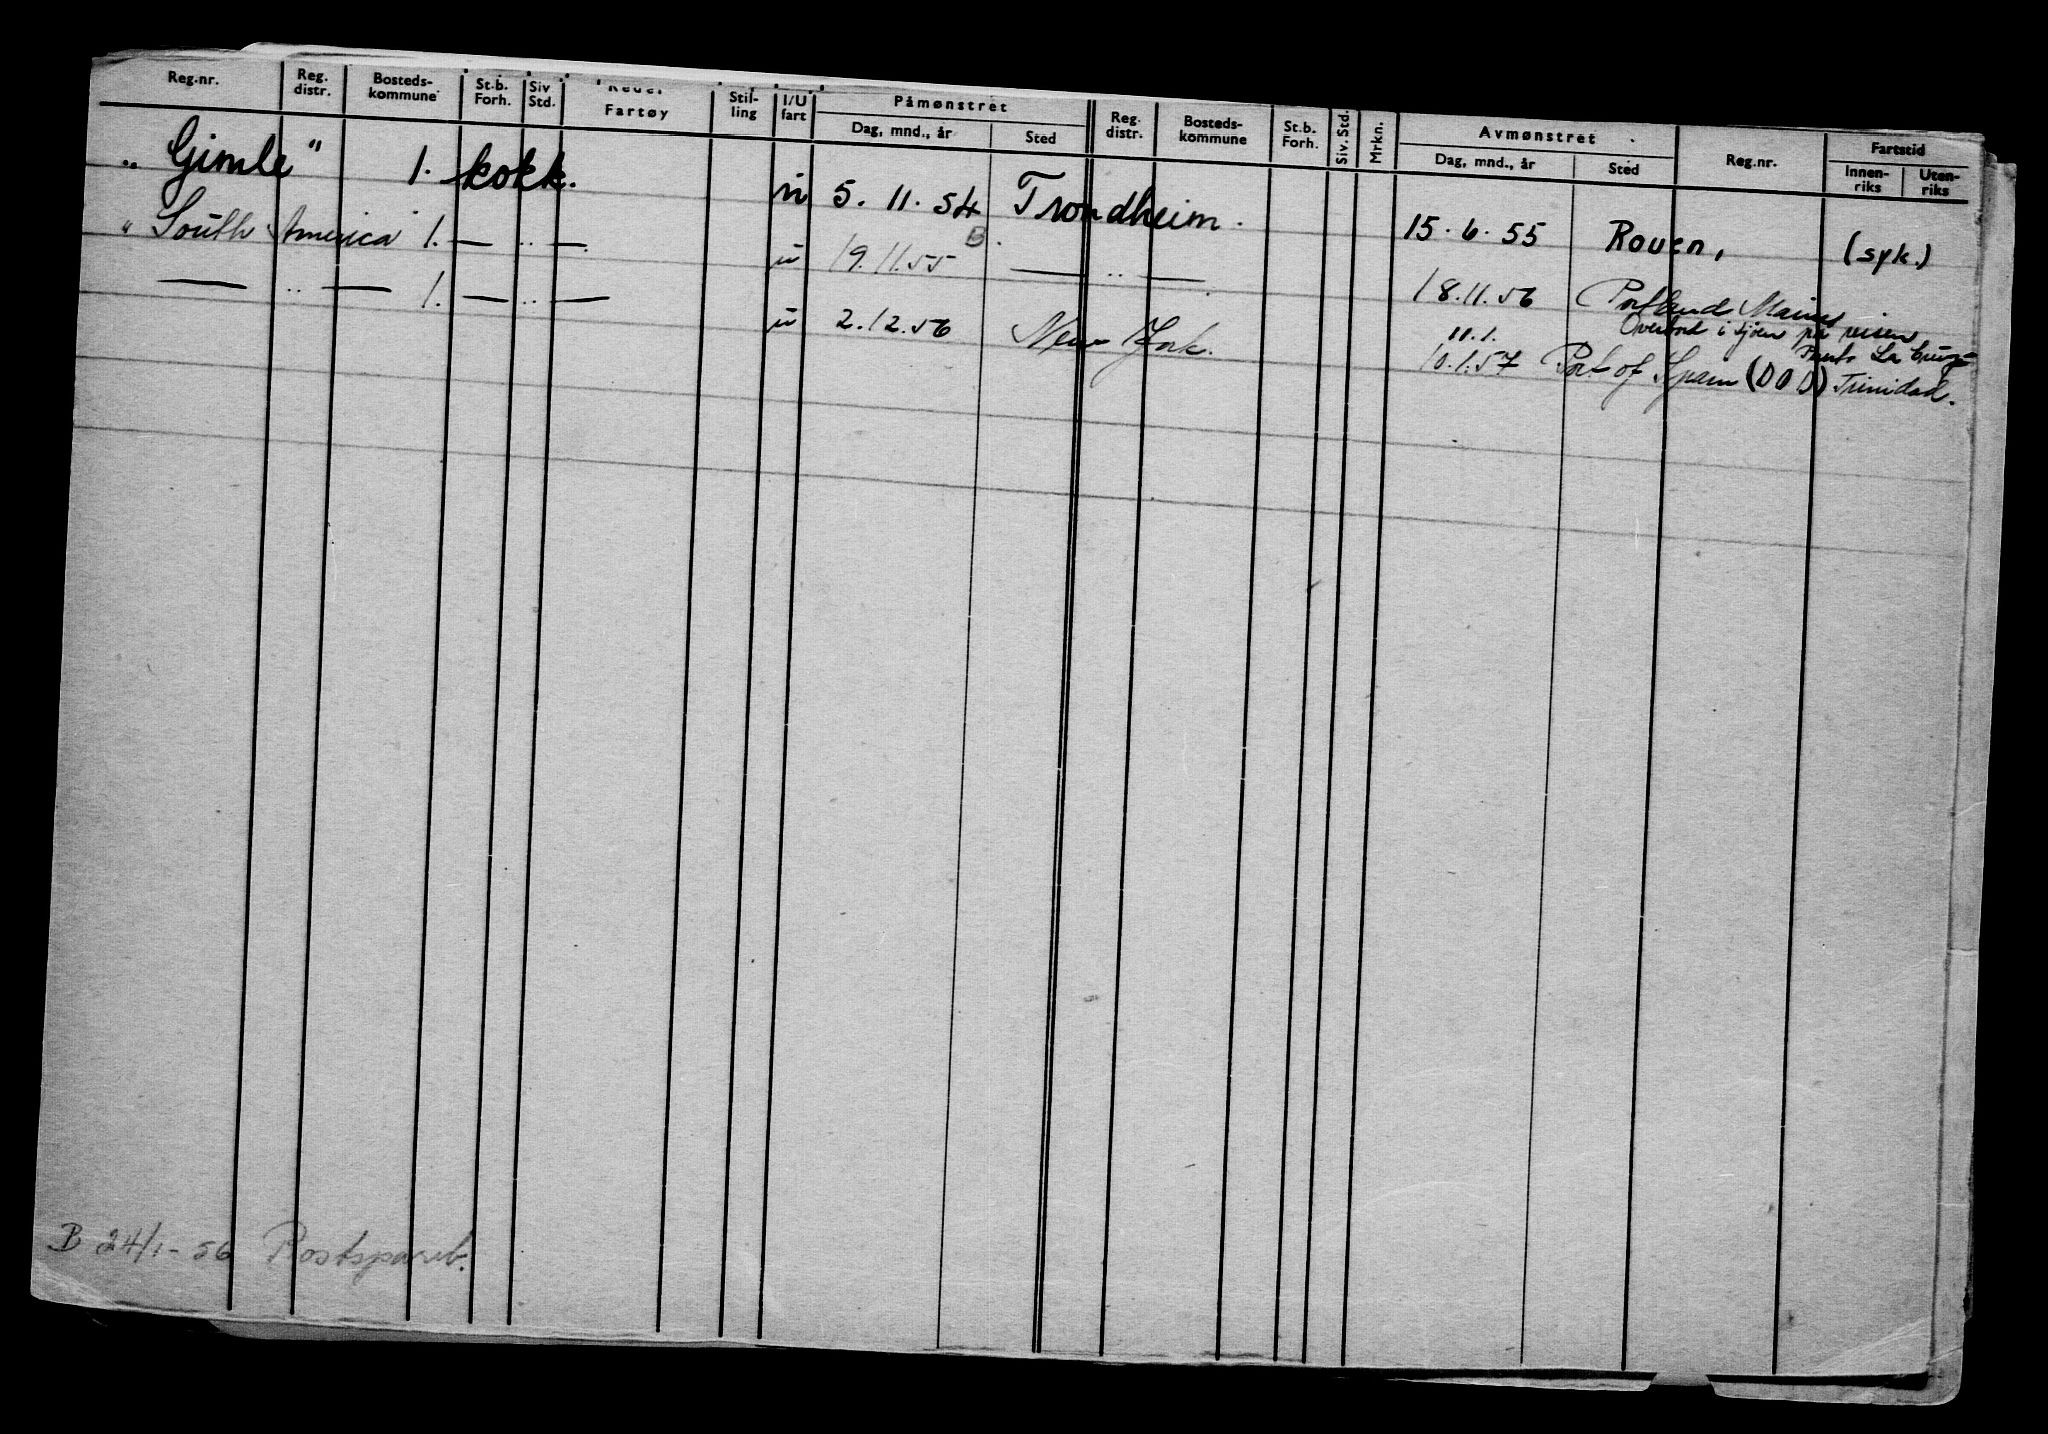 Reg.nr. Reg. distr. Bosteds-kommune St.b. Forh. Siv Std. Fartøy Stil-ling I/U fart Påmønstret Dag, mnd., år Sted Reg. distr. Bosteds-kommune St.b. Forh. Siv. Std. Mrkn. Avmønstret Dag, mnd., år Sted Reg.nr. Fartstid Innen-riks Uten-riks
„ Gimle " 1. kokk. u 5. 11. 54 Trondheim. 15. 6. 55 Rouen, (syk.)
" South America 1. — .. — . u 19. 11. 55 B. — .. — . 18. 11. 56 Portland Maine
— .. — 1. — .. — u 2. 12. 56 New York. 10. 1. 57 Port of Spain (DOD) Trinidad.
11. 1. Overbord i sjøen på reisen
Punto La Cruz-
B 24/1 - 56 Postspareb.